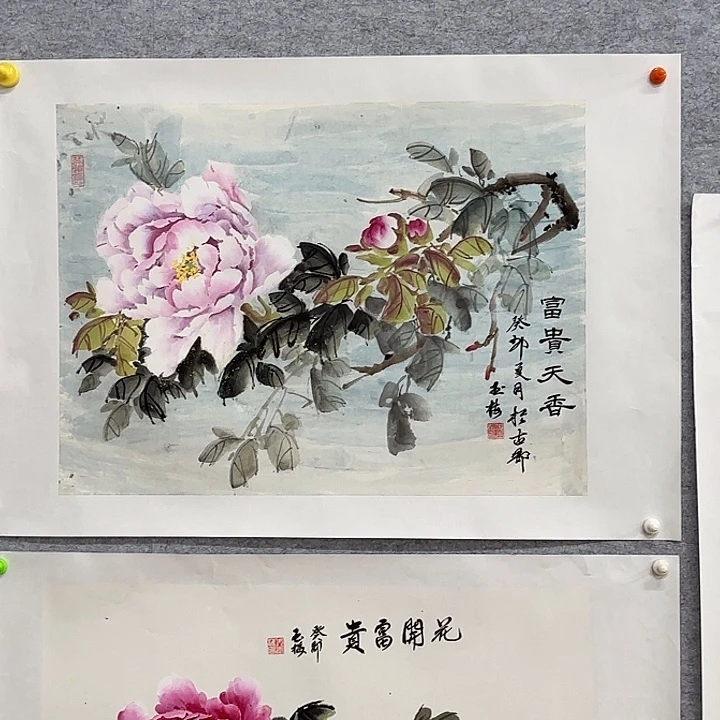 富貴天香
癸卯夏月於古鄉
玉梅
花開富貴
癸卯
玉梅